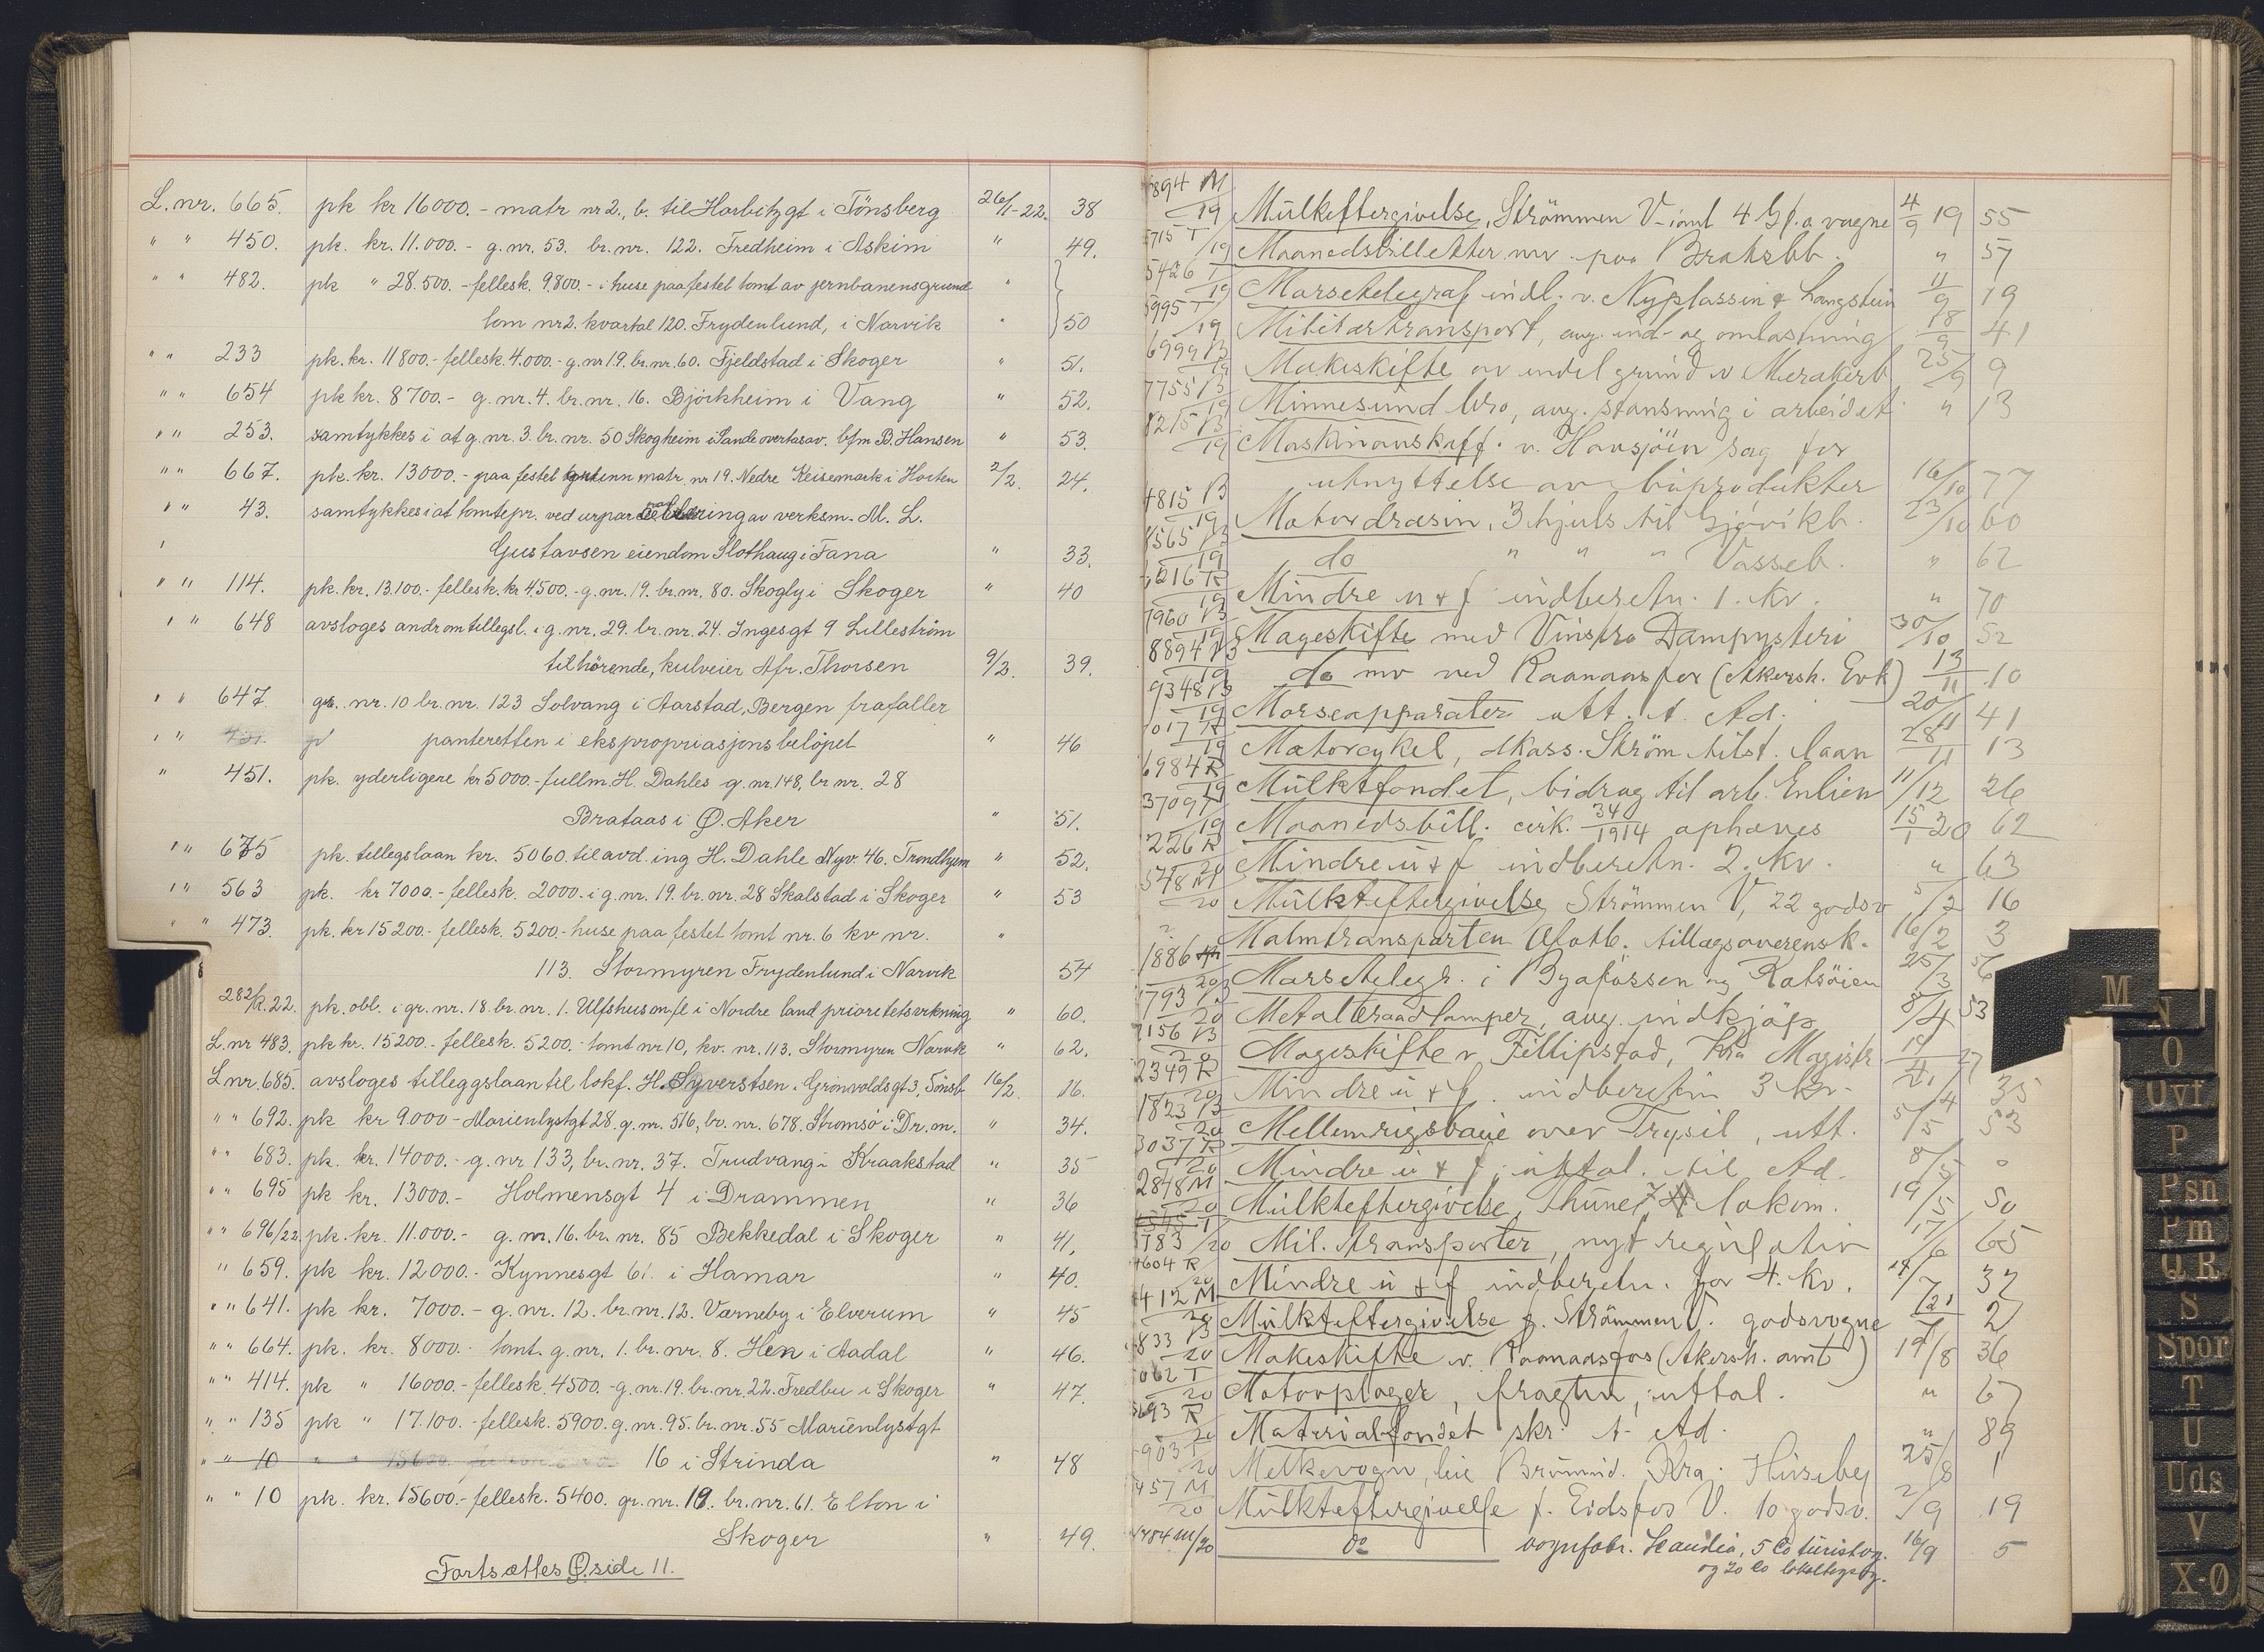 L. nr. 665. pk kr 16000.- matr nr 2., b. til Harbitzgt i Tönsberg 26/1-22. 38
" " 450. pk. kr. 11.000.- g. nr. 53. br. nr. 122. Fredheim i Askim " 49.
" " 482. pk " 28.500.- fellesk. 9.800.- i huse paa festet tomt av jernbanens grund "
tom nr 2. kvartal 120. Frydenlund, i Narvik " 50
" " 233 pk. kr. 11800.- fellesk. 4.000.- g. nr 19. br. nr. 60. Fjeldstad i Skoger " 51.
" " 654 pk kr. 8700.- g. nr. 4. br. nr. 16. Björkheim i Vang " 52.
" " 253. samtykkes i at g. nr. 3. br. nr. 50 Skogheim i Sande overtas av. bfm B. Hansen " 53.
" " 667. pk. kr. 13000.- paa festet matr. nr 19. Nedre Keisemark i Horten 2/2. 24.
" " 43. samtykkes i at tomtepr. ved av verksm. M. L.
" Gustavsen eiendom Slothaug i Fana " 33.
" " 114. pk. kr. 13.100.- fellesk. kr 4500.- g. nr. 19. br. nr. 80. Skogly i Skoger " 40
" " 648 avsloges andr om tillegsl. i g. nr. 29. br. nr. 24. Ingesgt 9 Lilleström
tilhörende, kulveier Afr. Thorsen 9/2. 39.
" " 647. g. nr. 10 br. nr. 123 Solvang i Aarstad, Bergen frafaller
" " panteretten i ekspropriasjonsbelöpet " 46
" 451. pk. yderligere kr 5000.- fullm. H. Dahles g. nr. 148, br nr. 28
Brataas i Ø. Aker " 51.
" " 675 pk. tillegslaan kr. 5060. til avd. ing H. Dahle Nyv. 46. Trondhjem " 52.
" " 563 pk. kr 7000.- fellesk. 2000.- i g. nr. 19. br. nr. 28 Skalstad i Skoger " 53
" " 473. pk. kr 15200.- fellesk. 5200.- huse paa festet tomt nr. 6 kv nr. "
113. Stormyren Frydenlund i Narvik 54
282/R.22. pk. obl. i gr. nr. 18. br. nr. 1. Ulfshus om.fl i Nordre land prioretetsvikning " 60.
L. nr 483. pk kr. 15200.- fellesk. 5200.- tomt nr 10, kv. nr. 113. Stormyren Narvik " 62.
L nr. 685. avsloges tilleggslaan til lokf. H. Syverstsen. Grönvoldsgt 3, Tönsb. 16/2. 16.
" " 692. pk kr 9.000- Marienlystgt 28. g. nr. 516, br. nr. 678. Stromsö i Dr. m. " 34.
" " 683. pk. kr. 14000.- g. nr 133, br. nr. 37. Trudvang i Kraakstad " 35
" " 695 pk kr. 13000.- Holmensgt 4 i Drammen " 36
" " 696/22 pk. kr. 11.000.- g. nr. 16. br. nr. 85 Bekkedal i Skoger " 41,
" 659. pk kr. 12000.- Kynnesgt 61. i Hamar " 40.
" " 641. pk kr. 7000.- g. nr. 12. br. nr. 12. Varneby i Elverum " 45
" " 664. pk. kr. 8000.- tomt. g. nr. 1. br. nr. 8. Hen i Aadal " 46.
" " 414. pk " 16000.- fellesk. 4500.- g. nr. 19. br. nr. 22. Fredbu i Skoger " 47.
" " 135 pk " 17.100.- fellesk. 5900. g. nr. 95. br. nr. 55 Marienlystgt
" " 10 " " 16 i Strinda " 48
" " 10 pk. kr. 15600.- fellesk. 5400. gr. nr. 19. br. nr. 61. Elton i
Skoger " 49.
Fortsættes Ø. side 11.
894 M/19 Mulkeftergivelse, Strömmen V- 4 vogne 4/9 19 55
5715 T/19 Maanedsbilletter mv. paa Bratsbb. " 57
5426 T/19 Morsetelegraf indl. v. Nyplassen & Langstein 11/9 19
5995 T/19 Militærtransport, ang. ind- og omlastning 18/9 41
6999 B/19 Makeskifte av endel grund v Merakerb 25/9 9
7755 B/19 Minnesund bro, ang. stansning i arbeidet " 13
8215 B/19 Maskinanskaff. v. Hansjöen sag for
utnyttelse av biprodukter 16/10 77
4815 B/19 Motordræsin, 3 hjuls til Gjövikb. 23/10 60
8565 B/19 do " " " Vosseb. " 62
6216 R/19 Mindre u & f indberetn. 1. kv. " 70
7960 B/19 Mageskifte med Vinstra Dampysteri 30/10 52
8894 B/19 do mv ved Raanaasfos (Akersh. Evk) 13/11 10
9348 B/19 Morseapparater utt. t. Ad. 20/11 41
7017 R/19 Motorcykel, dkass. Ström tilst. laan 28/11 13
6984 R/19 Mulktfondet, bidrag til arb. Enlien 11/12 26
3709 /19 Maanedsbill. cirk. 340/1914 ophæves 15/1 20 62
226 R/20 Mindre u & f indberetn. 2. kv. " 63
578 M/20 Mulkteftergivelse Strömmen V, 22 godsv 5/2 16
Malmtransporten Ofotb. tillægsoverensk. 16/2 3
1886 /20 Morsetelegr. i Byafossen og 25/3 56
1793 B/20 Metaltraadlamper, ang. indkjöp 8/4 53
2156 B/20 Mageskifte v. Fillipstad, Kra Magistr. 27
2349 R/20 Mindre u & f. indberetn 3 kv. 35
1823 B/20 Mellemrigsbane over Trysil, utt. 5/5 53
3037 R/20 Mindre u & f. uttal. til Ad. 8/5
2848 M/20 Mulkteftergivelse, Thune, 7 lokom. 19/5 50
3783/20 Mil. transporter, nyt regulativ 17/6 65
4604 R/20 Mindre u & f indberetn. for 4. kv. 32
412 M/20 Mulkteftergivelse f. Strömmen V. godsvogne 2
833 B/20 Makeskifte v. Raanaasfos (Akersh. amt) 19/8 36
062 T/20 Motorploger, fragten, uttal. " 67
5693 R/20 Materialfondet skr. t. Ad. " 89
903 T/20 Melkevogn, leie Brumund. Kra: Huseby 25/8 1
457 M/20 Mulkteftergivelse f. Eidsfos V. 10 godsv. 2/9 19
4784 M/20 do vognfabr. Scandia, 5 Co turistvg. 16/9 5
og 20 Co lokaltogsvg.
M
N
O
Ovf
P
Psn
Pm
Q R
S
Spor
T
U
Uds
V
X-Ø